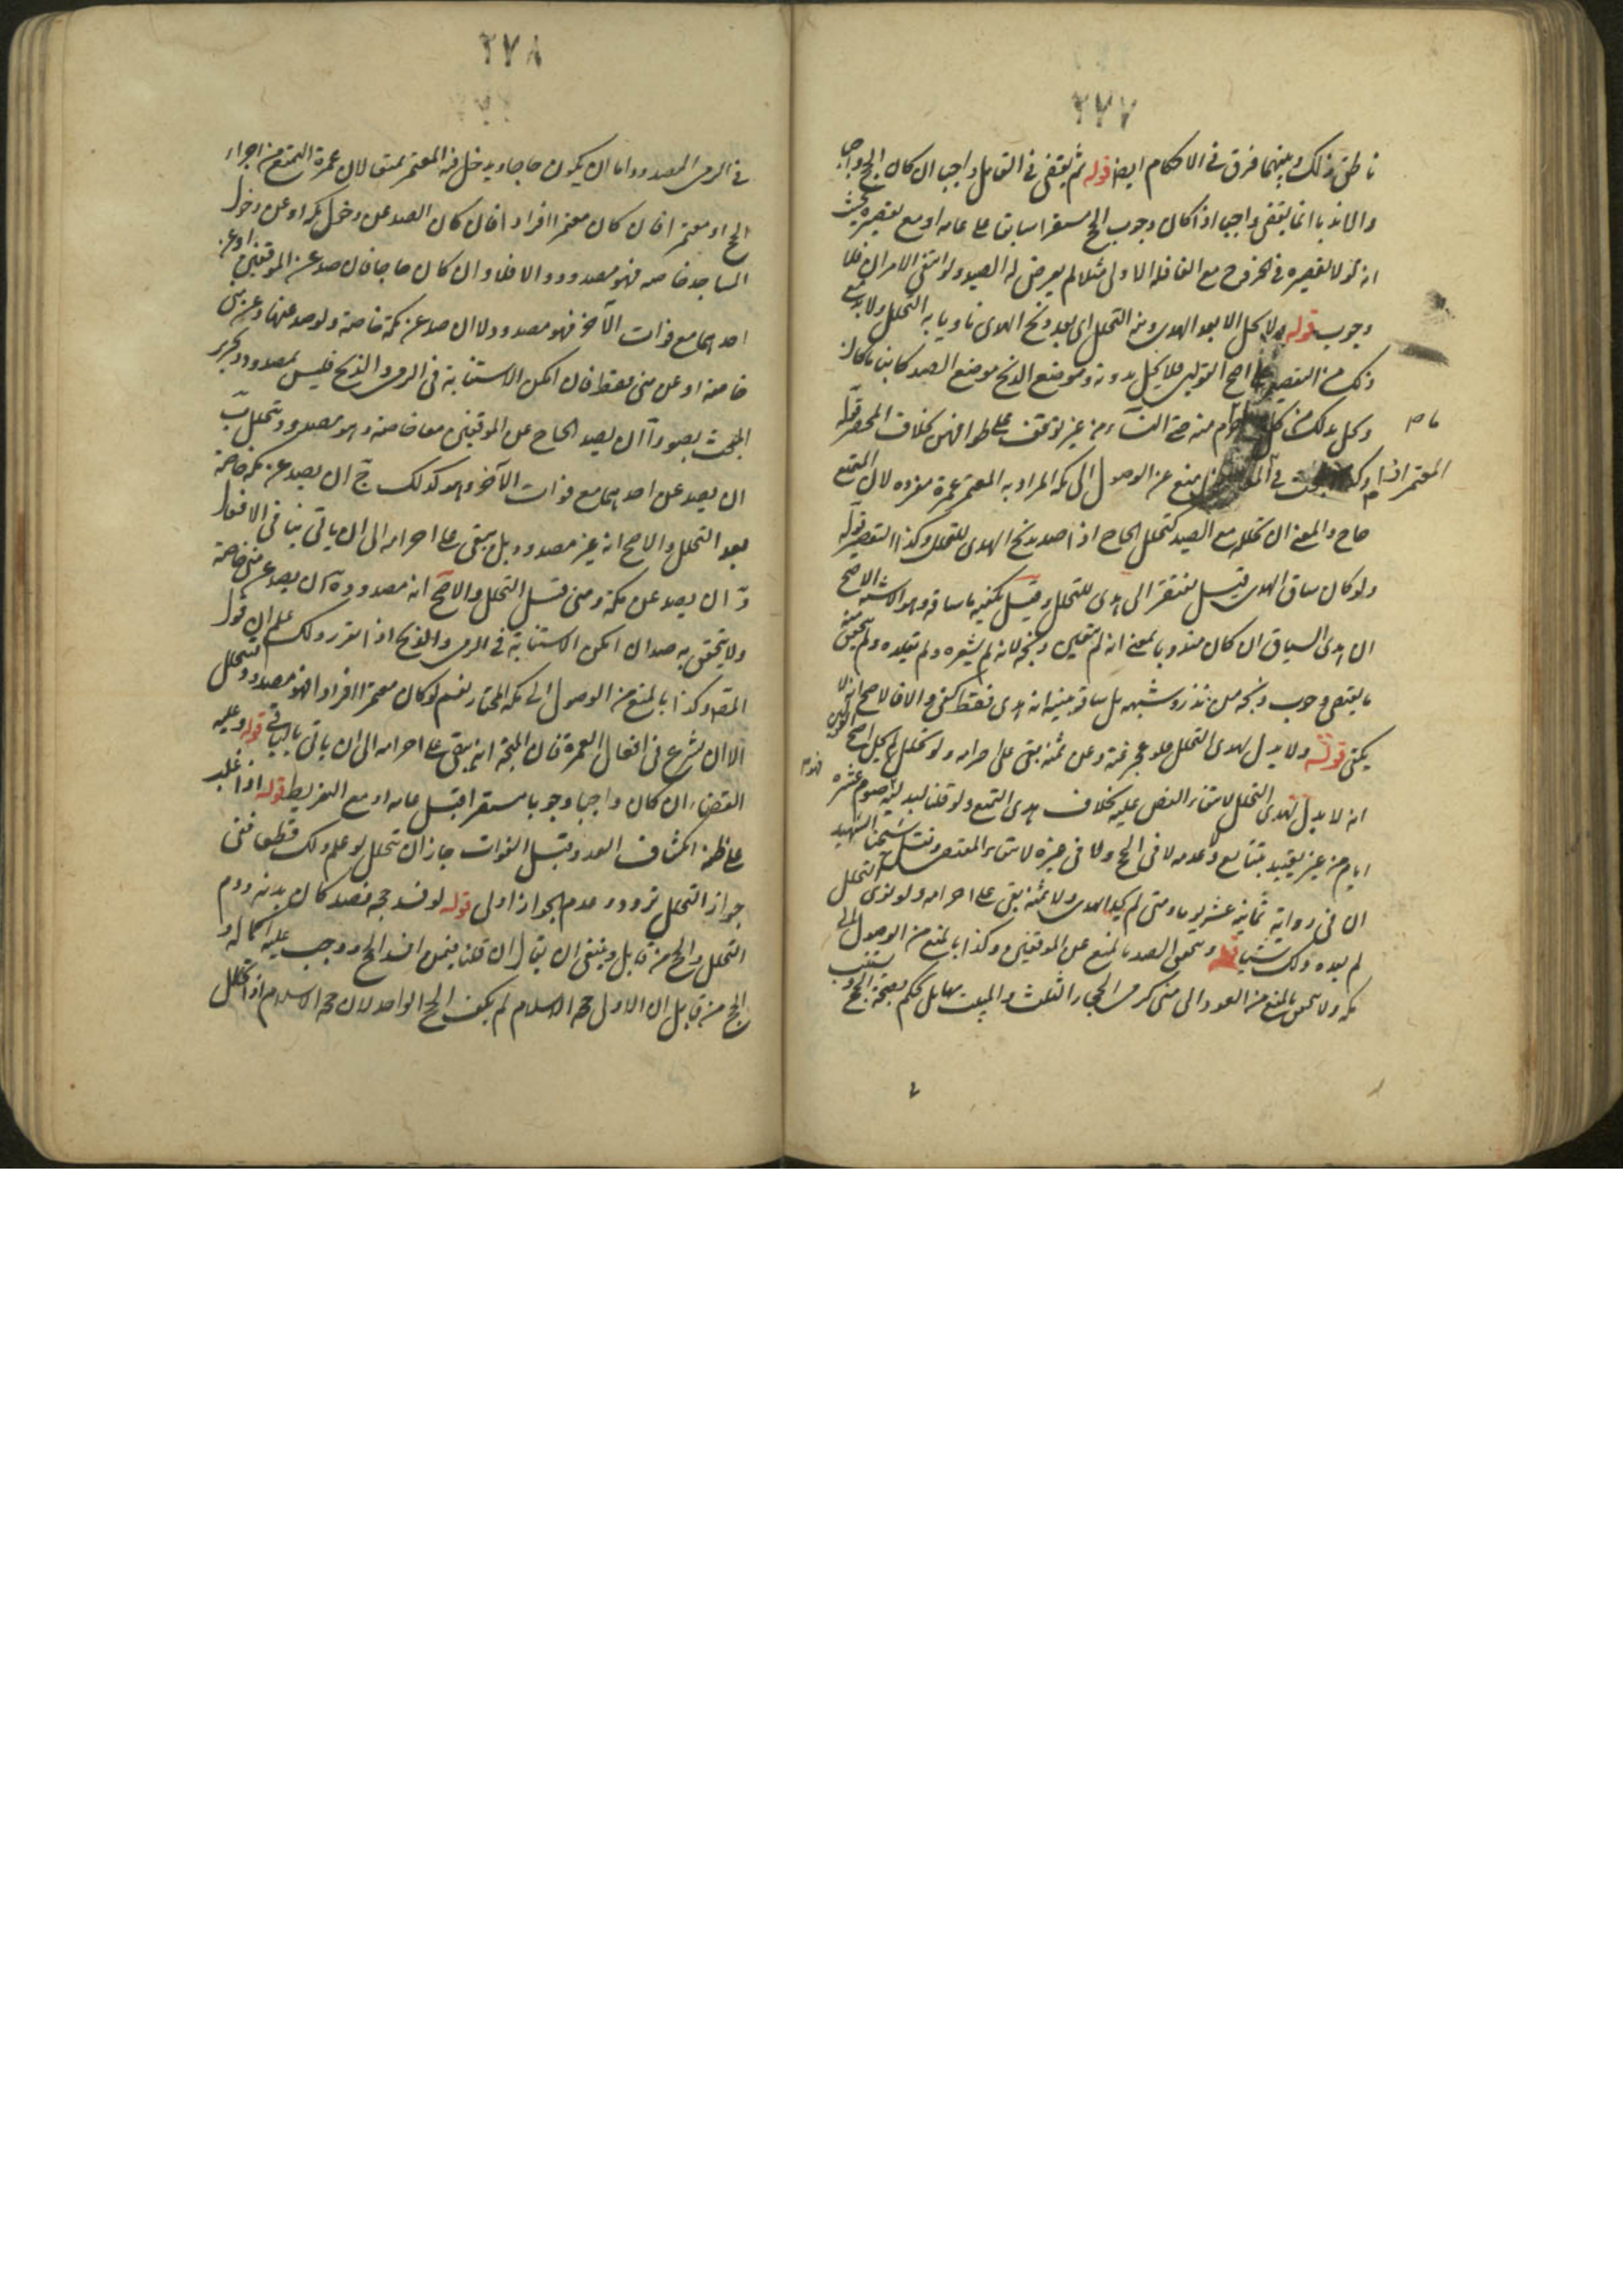 ٢٧٧
ناطق ذلك وبينهما فرق في الاحكام ايضا قوله ثم يقضي في القابل واجبا ان كان الحج واجبا
والا ندبا انما يقضي واجبا اذا كان وجوب الحج مستقرا سابقا على عامه او مع تقصيره بحيث
انه لولا تقصيره في الخروج مع القافلة الاولى مثلا لم يعرض له الصد ولو انتفى الامران فلا
وجوب قوله ولا يحل الا بعد الهدي ونية التحلل اي بعد ذبح الهدي ناويا به التحلل ولا بد مع
ذلك من التقصير على اصح القولين فلا يحل بدونه وموضع الذبح موضع الصد كائنا ما كان
ويحل بذلك من كل ما حرم منه حتى النساء من غير توقف على طوافهن بخلاف المحصر قوله
وكذا البحث في المعتمر اذا منع عن الوصول الى مكة المراد به المعتمر عمرة مفردة لان المتمتع
حاج والمعنى ان تحلله مع الصد كتحلل الحاج اذا صد بذبح الهدي للتحلل وكذا التقصير قوله
ولو كان ساق الهدي قيل يفتقر الى هدي للتحلل وقيل يكفيه ما ساقه وهو الاشبه الاصح
ان هدي السياق ان كان مندوبا بمعنى انه لم يتعين ذبحه لانه لم يشعره ولم يقلده ولم يتحقق منه
ما يقتضي وجوب ذبحه من نذر وشبهه بل ساقه بنية انه هدي فقط كفى والا فالاصح انه لا
يكفي قوله ولا بدل لهدي التحلل فلو عجز عنه وعن ثمنه بقي على احرامه ولو تحلل لم يحل اصح القولين
انه لا بدل لهدي التحلل لانتفاء النص عليه بخلاف هدي التمتع ولو قلنا ببدليته صوم عشرة
ايام من غير تقييد بتتابع وعدمه لا في الحج ولا في غيره لانتفاء المقتضي ونقل شيخنا الشهيد
ان في رواية ثمانية عشر يوما ومتى لم يجد الهدي ولا ثمنه بقي على احرامه ولو نوى التحلل
لم يفده ذلك شيئا قوله ويتحقق الصد بالمنع عن الموقفين وكذا بالمنع من الوصول الى
مكة ولا يتحقق بالمنع من العود الى منى لرمي الجمار الثلث والمبيت بها بل يحكم بصحة الحج ويستنيب
في
٢٧٨
في الرمي المصدود اما ان يكون حاجا ويدخل فيه المعتمر تمتعا لان عمرة التمتع من اجزاء
الحج او معتمرا فان كان معتمرا افرادا فان كان الصد عن دخول مكة او عن دخول
المساجد خاصه فهو مصدود والا فلا وان كان حاجا فان صد عن الموقفين او عن
احدهما مع فوات الآخر فهو مصدود ولا ان صد عن مكة خاصة ولو صد عنها وعن منى
خاصة او عن منى فقط فان امكن الاستنابة في الرمي والذبح فليس بمصدود وتحرير
المبحث بصور آ ان يصد الحاج عن الموقفين معا خاصة وهو مصدود ويتحلل ب
ان يصد عن احدهما مع فوات الآخر وهو كذلك ج ان يصد عن مكة خاصة
بعد التحلل والاصح انه غير مصدود بل يبقى على احرامه الى ان ياتي بباقي الافعال
د ان يصد عن مكة ومنى قبل التحلل والاصح انه مصدود ه ان يصد عن منى خاصة
ولا يتحقق به صد ان امكن الاستنابة في الرمي والذبح اذا تقرر ذلك علم ان قول
المص وكذا بالمنع من الوصول الى مكة المختار نعم لو كان معتمرا افرادا فهو مصدود يتحلل
الا ان شرع في افعال العمرة فان المتجه انه يبقى على احرامه الى ان ياتي بالباقي قوله وعليه
القضاء ان كان واجبا وجوبا مستقرا قبل عامه او مع التفريط قوله اذا غلب
على ظنه انكشاف العدو قبل الفوات جاز ان يتحلل لو علم ذلك قطعا ففي
جواز التحلل تردد وعدم الجواز اولى قوله لو افسد حجه فصد كان بدنه ودم
التحلل والحج من قابل وينبغي ان يقال ان قلنا فيمن افسد الحج ووجب عليه اكماله و
الحج من قابل ان الاولى حجة الاسلام لم يكف الحج الواحد لان حجة الاسلام اذا تحلل